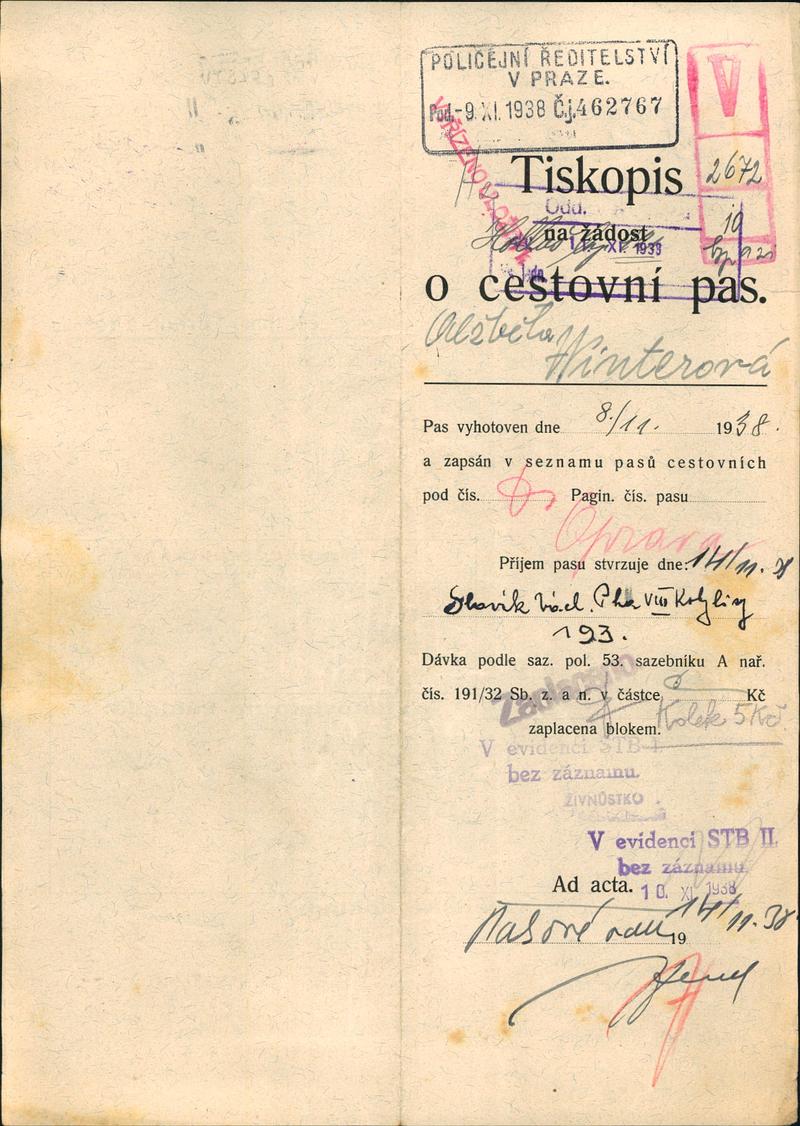 POLICEJNÍ ŘEDITELSTVÍ
V PRAZE.
Pod. -9. XI. 1938 Čj. 462767
V
Tiskopis
2672
Odd.
na žádost
10
XI. 1938
o cestovní pas.
Alžběta
Winterová
Pas vyhotoven dne 8./11. 1938.
a zapsán v seznamu pasů cestovních
pod čís. Pagin. čís. pasu
Oprava
Příjem pasu stvrzuje dne: 14/11. 38
Slavík Václ. Pha VIII Kobylisy
193.
Dávka podle saz. pol. 53. sazebníku A nař.
čís. 191/32 Sb. z. a n. v částce Kč
Zaplaceno
zaplacena blokem. Kolek 5 Kč
V evidenci STB I.
bez záznamu.
ŽIVNŮSTKO
V evidenci STB II.
bez záznamu
Ad acta. 10. XI. 1938
14/11. 38
19